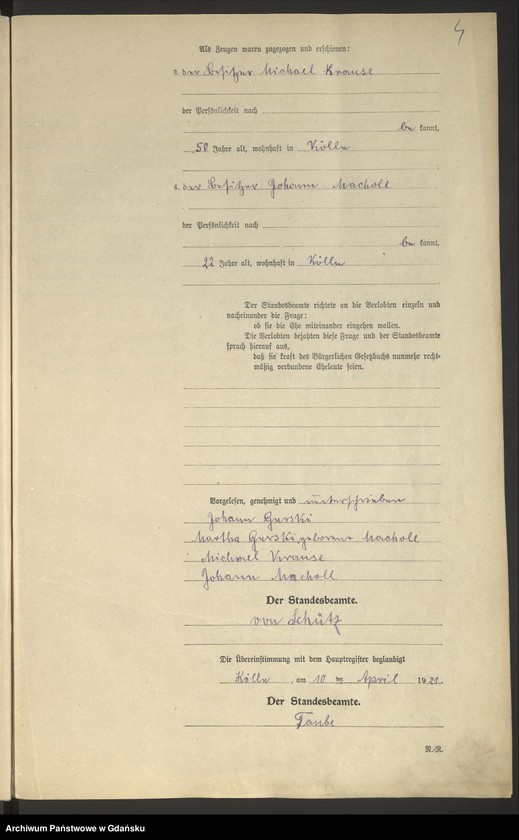 4
Als Zeugen waren zugezogen und erschienen:
3. der Besitzer Michael Krause
der Persönlichkeit nach
be kannt,
50 Jahre alt, wohnhaft in Kölln
4. der Besitzer Johann Macholl
der Persönlichkeit nach
be kannt,
22 Jahre alt, wohnhaft in Kölln
Der Standesbeamte richtete an die Verlobten einzeln und
nacheinander die Frage:
ob sie die Ehe miteinander eingehen wollen.
Die Verlobten bejahten diese Frage und der Standesbeamte
sprach hierauf aus,
daß sie kraft des Bürgerlichen Gesetzbuchs nunmehr recht-
mäßig verbundene Eheleute seien.
Vorgelesen, genehmigt und unterschrieben
Johann Gurski
Martha Gurski, geborene Macholl
Michael Krause
Johann Macholl
Der Standesbeamte.
von Schütz
Die Übereinstimmung mit dem Hauptregister beglaubigt
Kölln, am 10 ten April 1921.
Der Standesbeamte.
Taube
N.-R.
Archiwum Państwowe w Gdańsku